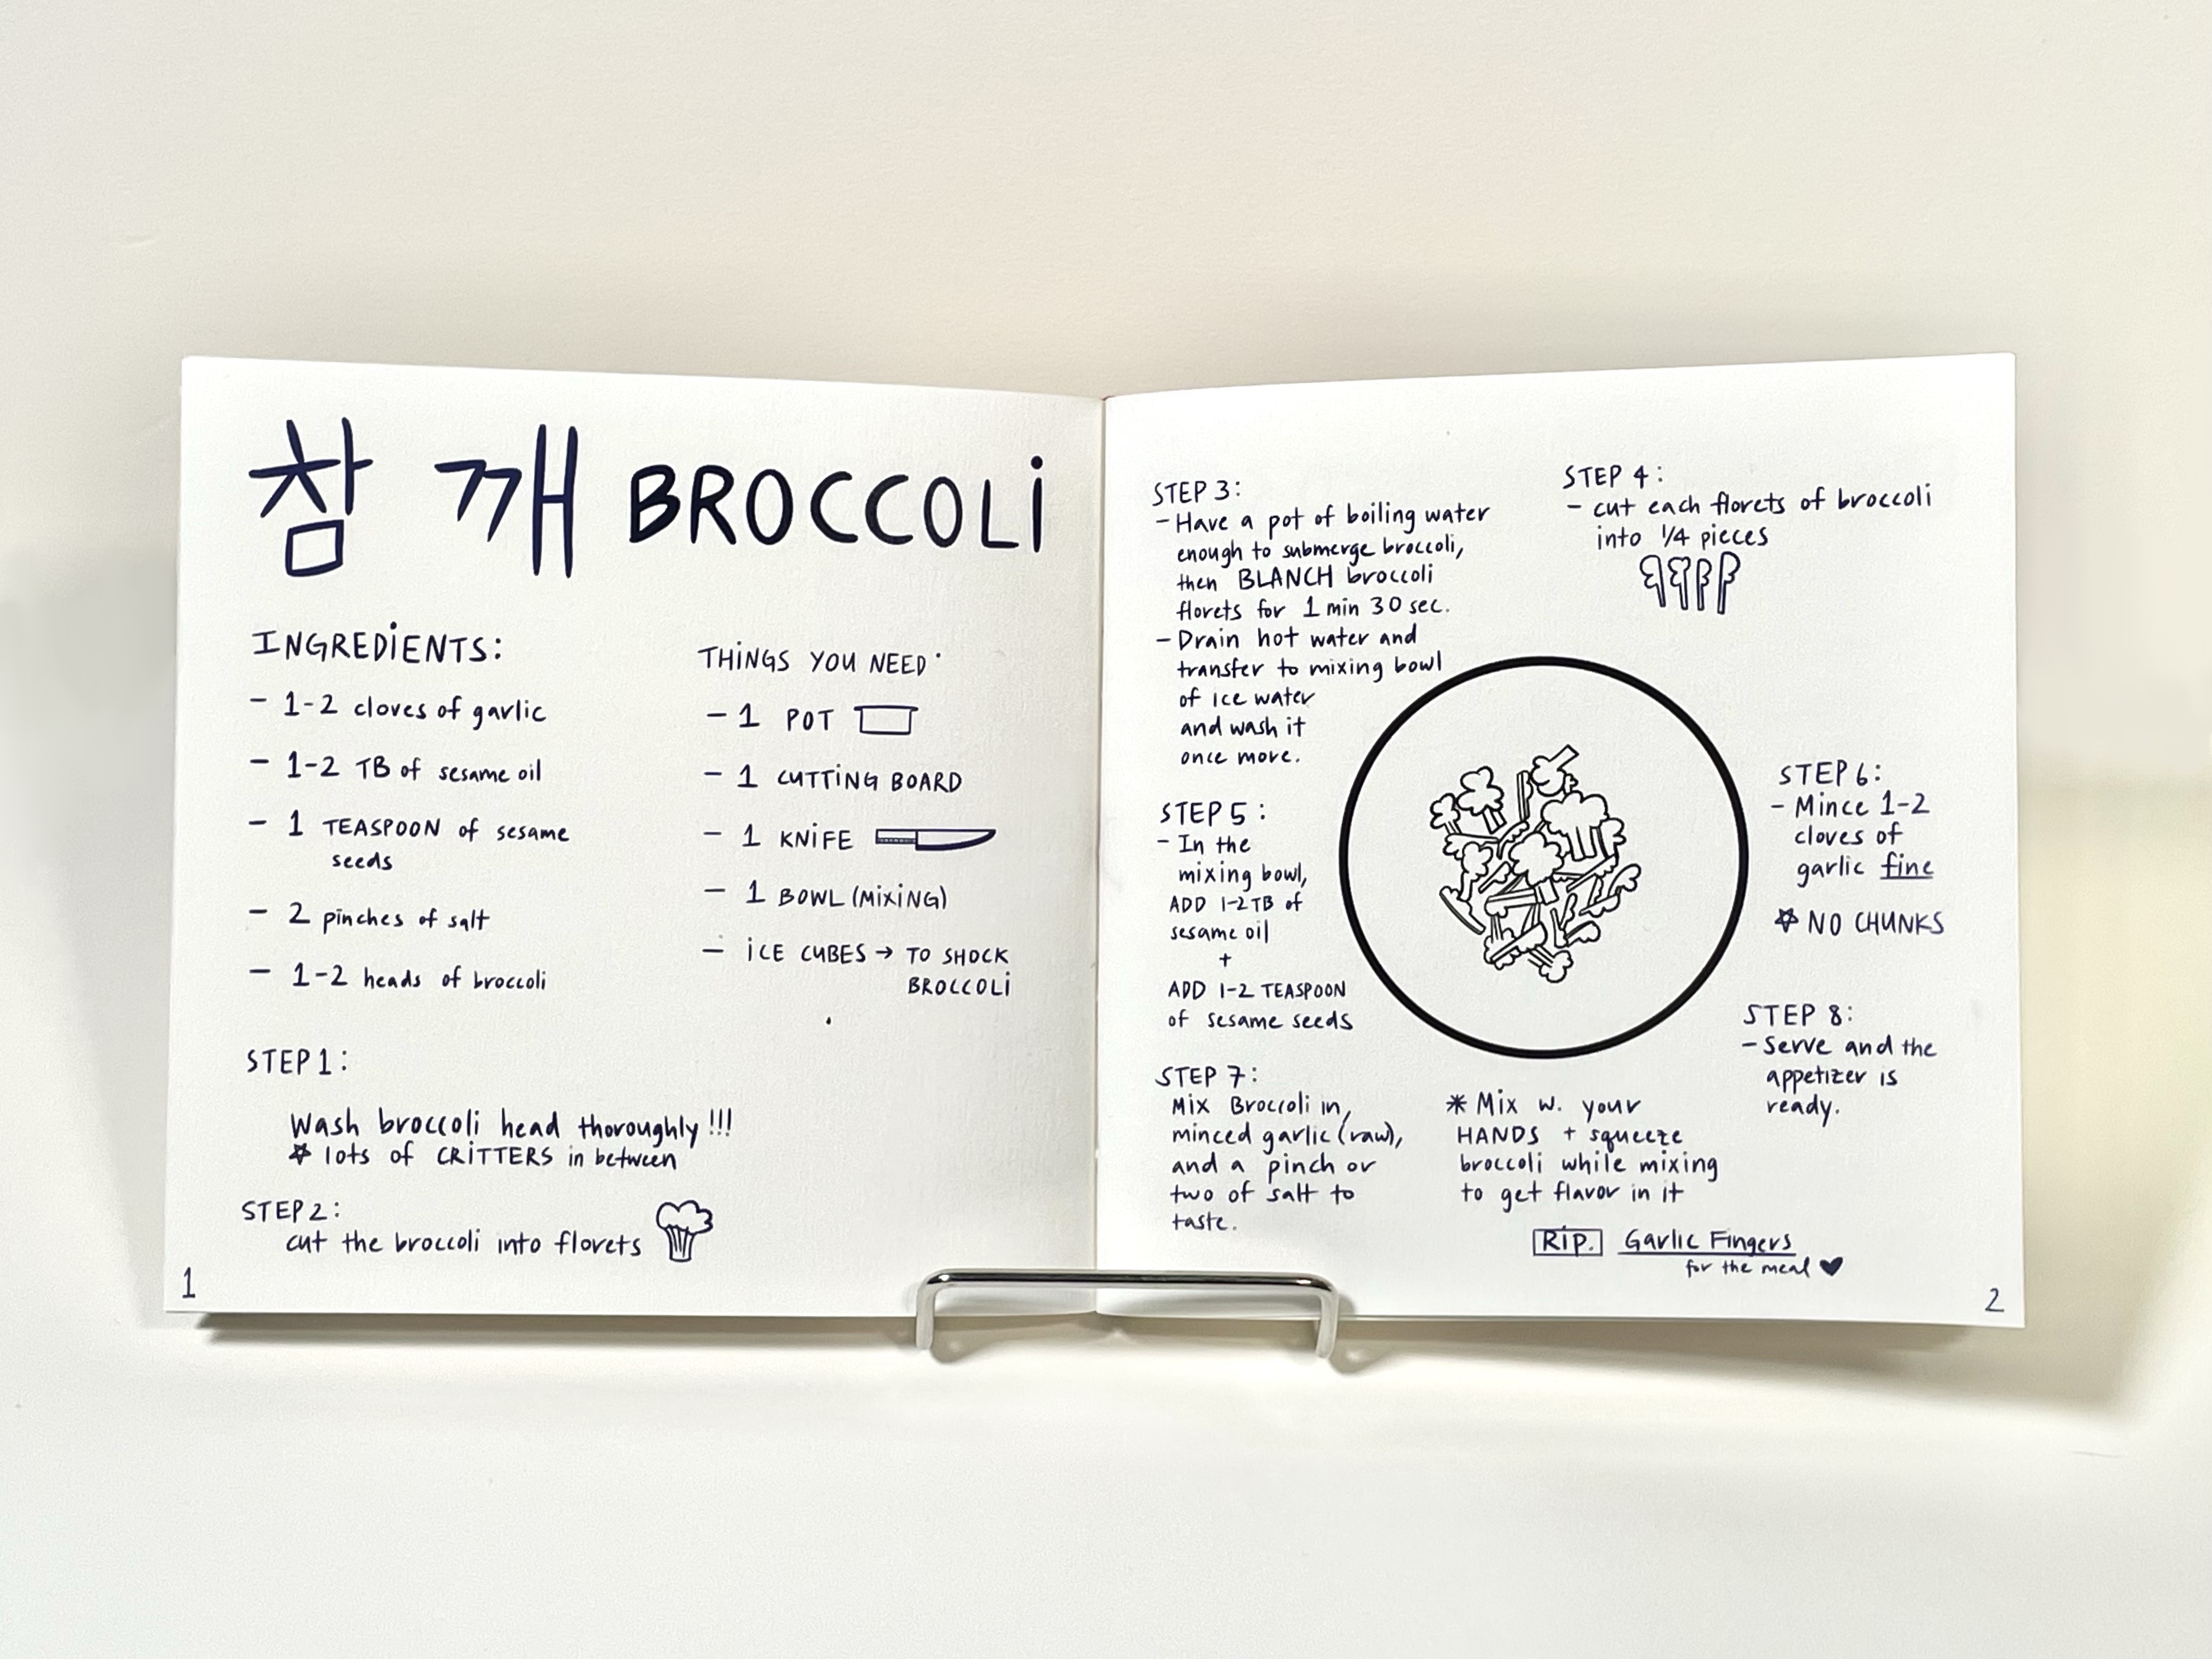 참 깨 BROCCOLi
INGREDiENTS:
- 1-2 cloves of garlic
- 1-2 TB of sesame oil
- 1 TEASPOON of sesame
seeds
- 2 pinches of salt
- 1-2 heads of broccoli
THiNGS YOU NEED:
- 1 POT
- 1 CUTTiNG BOARD
- 1 KNiFE
- 1 BOWL (MiXiNG)
- iCE CUBES → TO SHOCK
BROCCOLi
STEP 1:
Wash broccoli head thoroughly!!!
☆ lots of CRiTTERS in between
STEP 2:
cut the broccoli into florets
1
STEP 3:
- Have a pot of boiling water
enough to submerge broccoli,
then BLANCH broccoli
florets for 1 min 30 sec.
- Drain hot water and
transfer to mixing bowl
of ice water
and wash it
once more.
STEP 4:
- cut each florets of broccoli
into 1/4 pieces
STEP 5:
- In the
mixing bowl,
ADD 1-2 TB of
sesame oil
+
ADD 1-2 TEASPOON
of sesame seeds
STEP 6:
- Mince 1-2
cloves of
garlic fine
☆ NO CHUNKS
STEP 7:
Mix Broccoli in,
minced garlic (raw),
and a pinch or
two of salt to
taste.
* Mix w. your
HANDS + squeeze
broccoli while mixing
to get flavor in it
RiP. Garlic Fingers
for the meal ♥
STEP 8:
- Serve and the
appetizer is
ready.
2